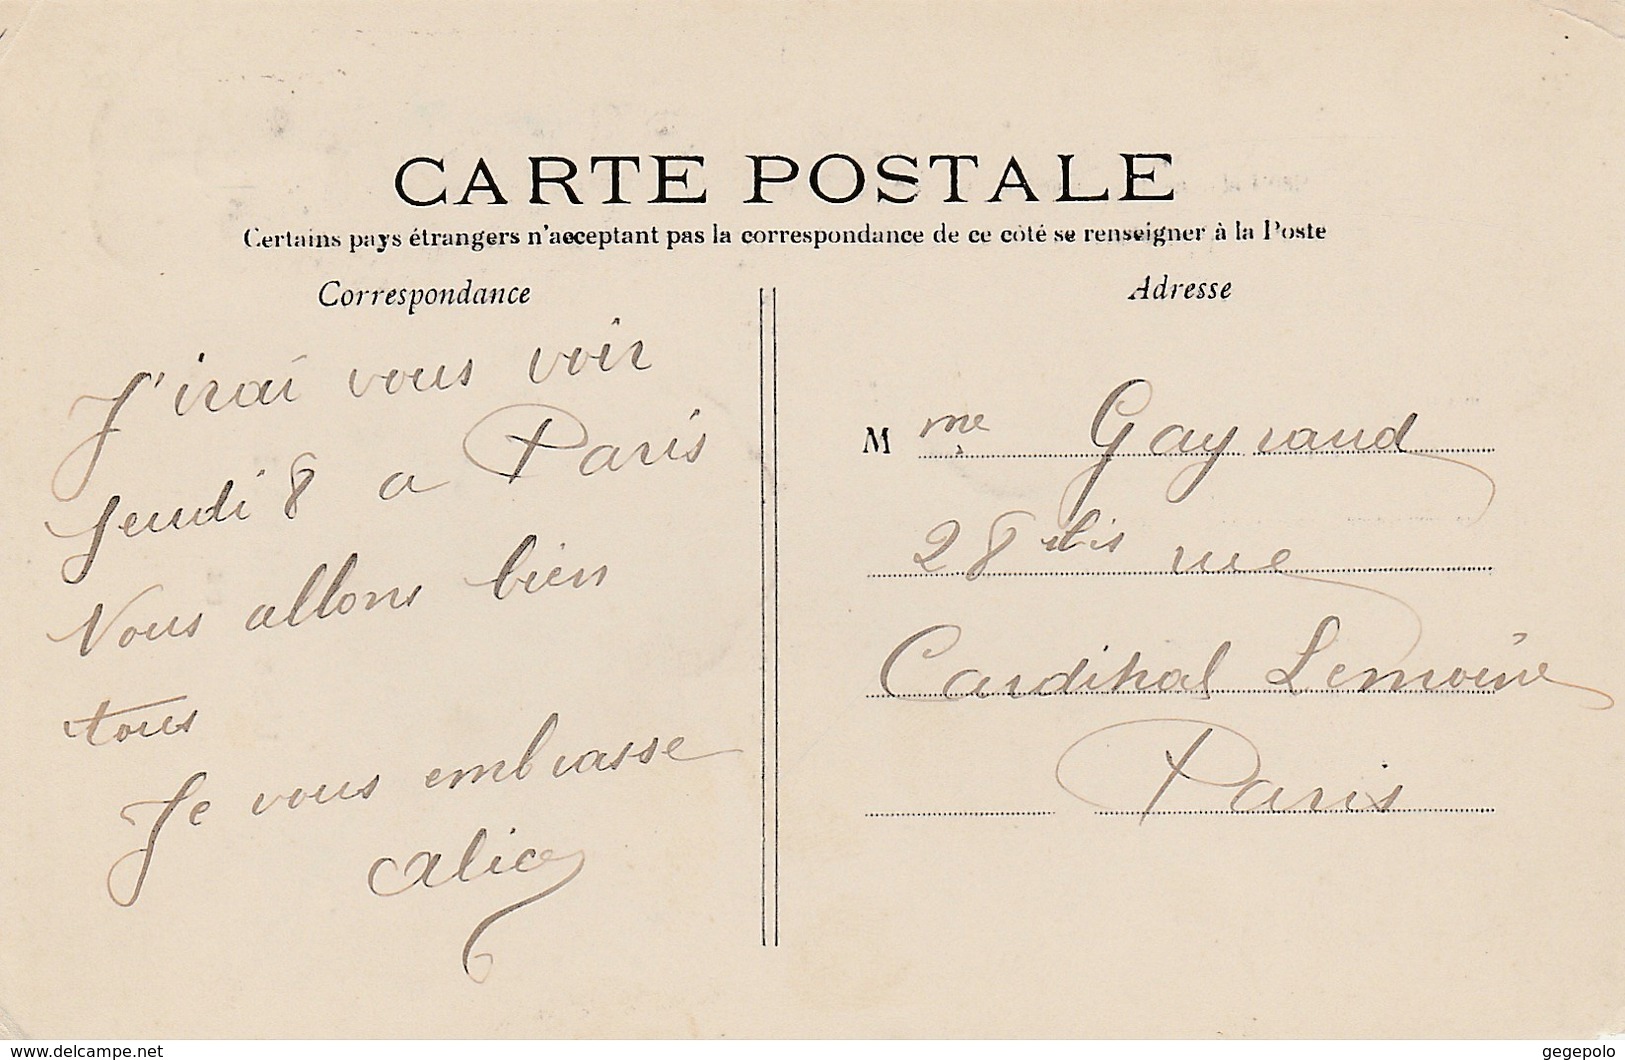 CARTE POSTALE
Certains pays étrangers n'acceptant pas la correspondance de ce côté se renseigner à la Poste
Correspondance
J'irai vous voir
jeudi 8 a Paris
Nous allons bien
tous
Je vous embrasse
Alice
Adresse
Mme Gayraud
28 bis rue
Cardinal Lemoine
Paris
www.delcampe.net
gegepolo